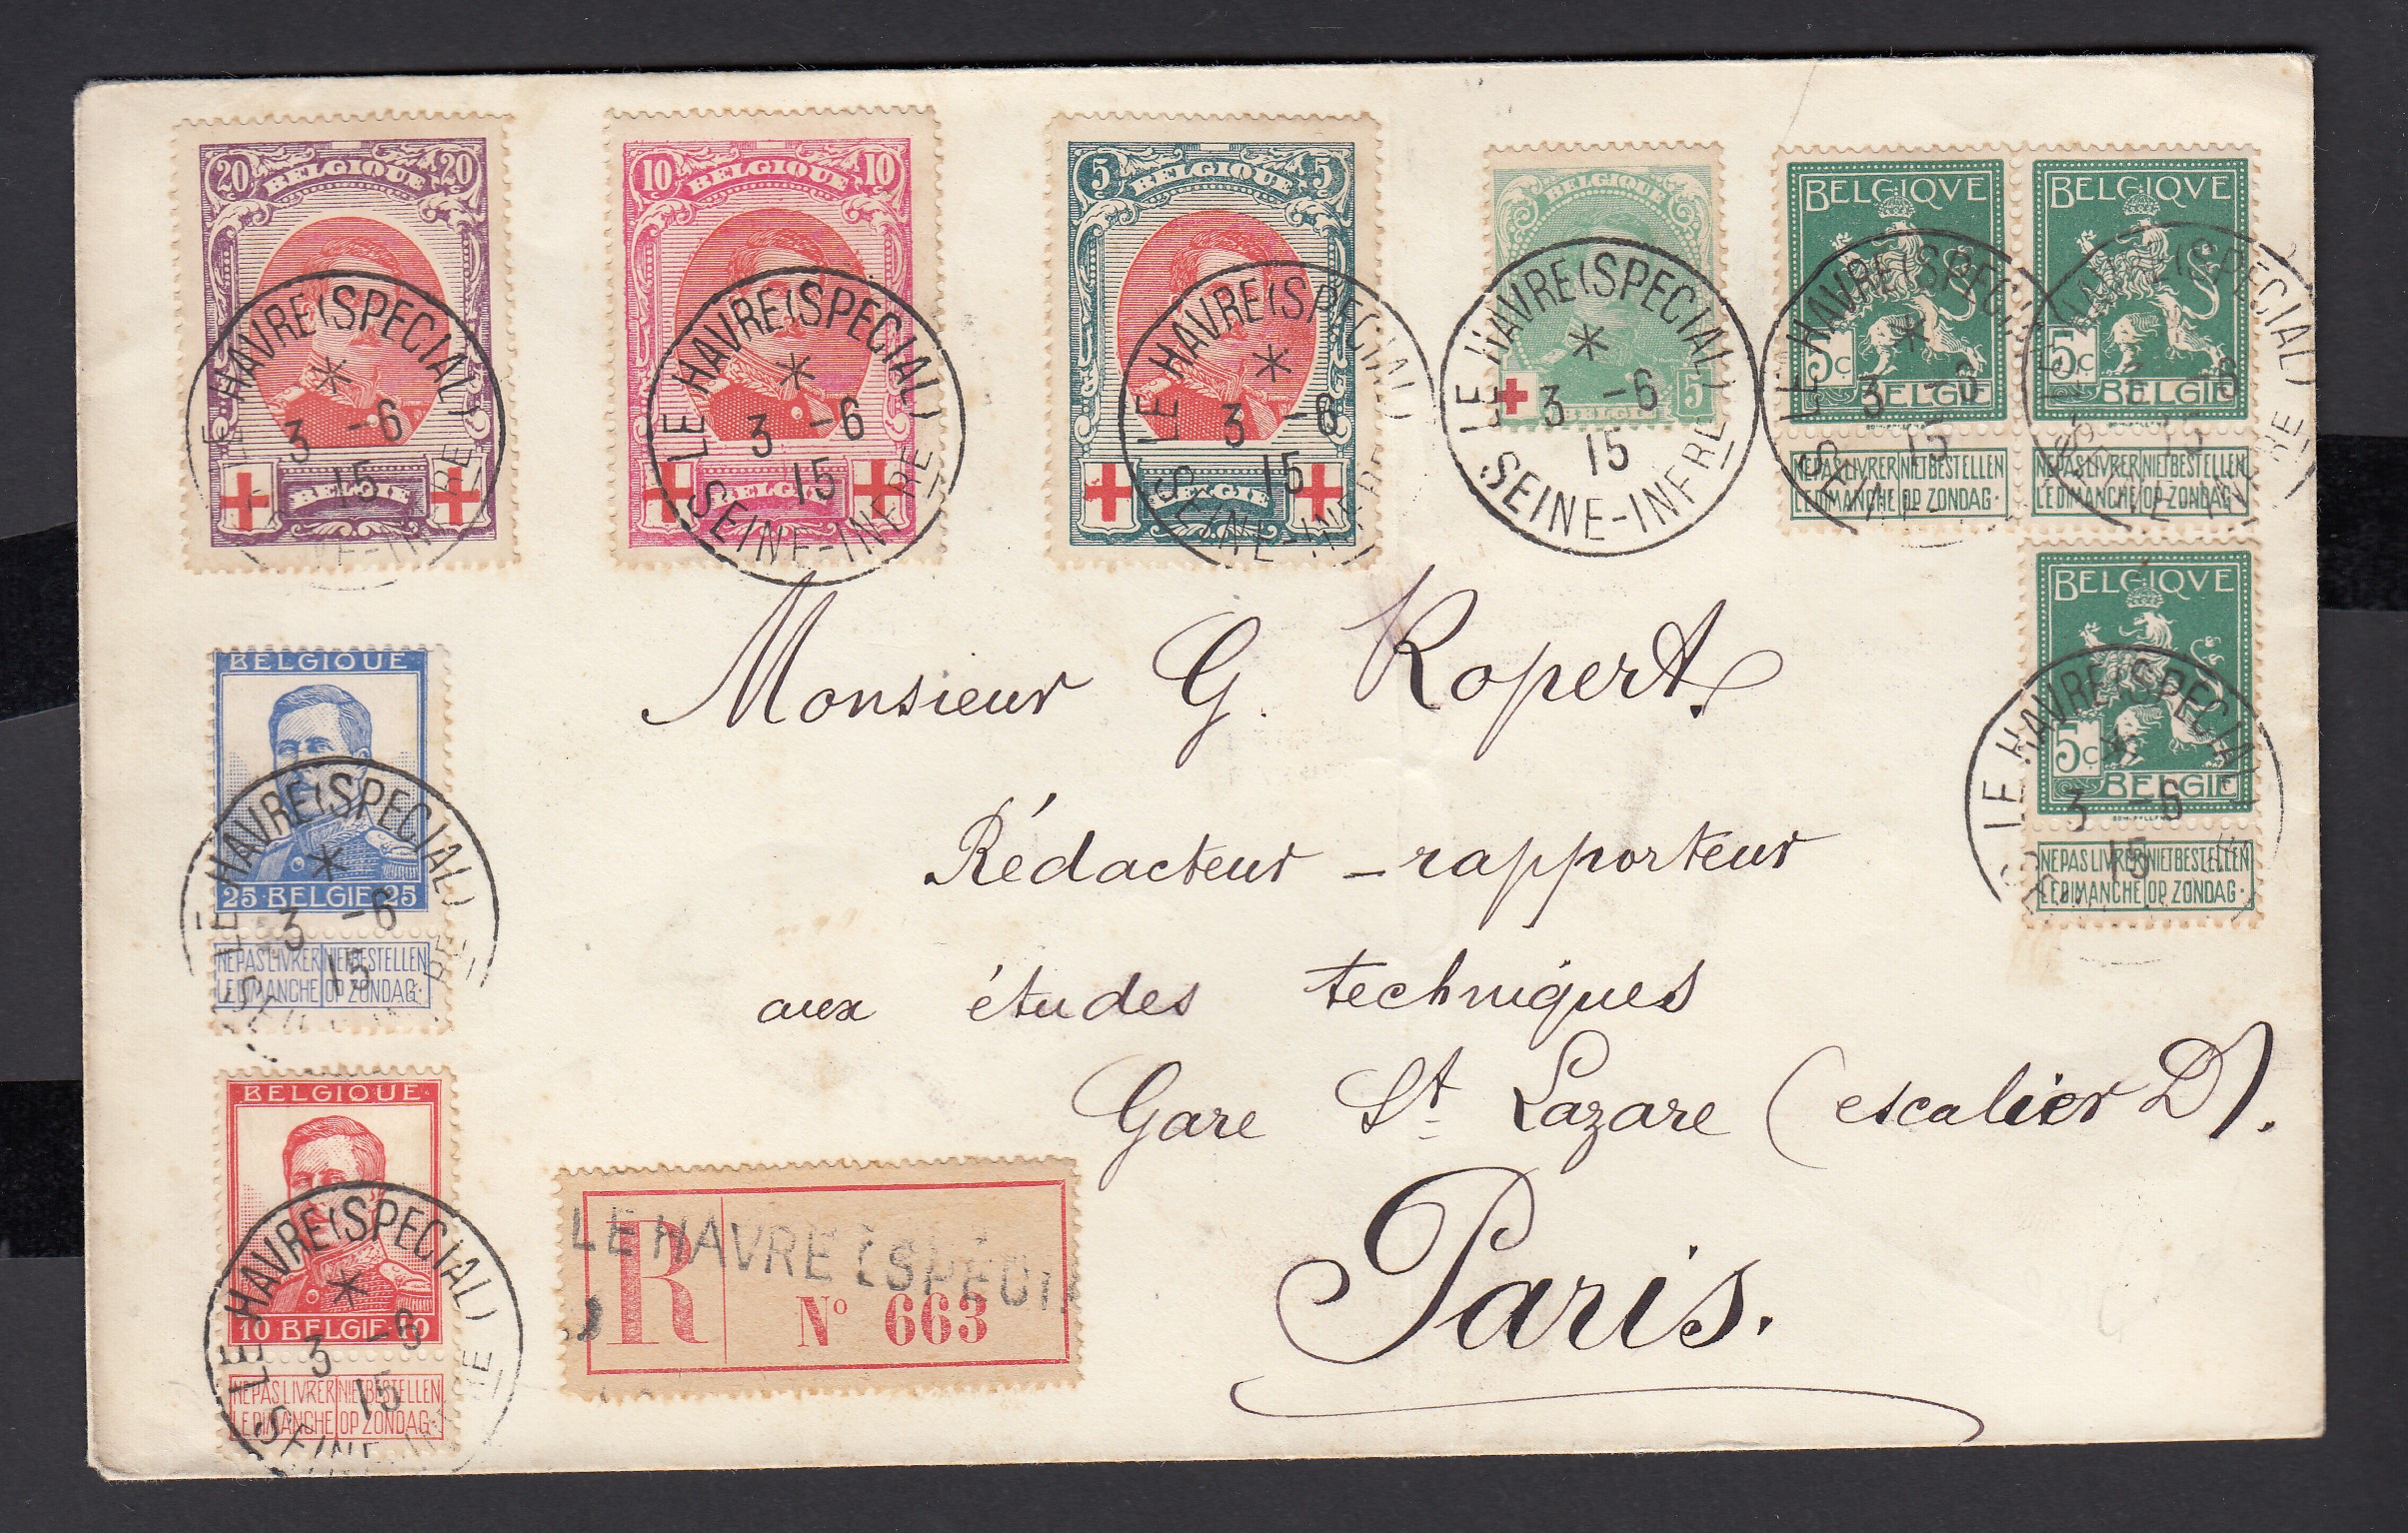 20 BELGIQUE 20
BELGIE
LE HAVRE (SPECIAL)
*
3 -6
15
SEINE-INFRE
10 BELGIQUE 10
BELGIE
LE HAVRE (SPECIAL)
*
3 -6
15
SEINE-INFRE
5 BELGIQUE 5
BELGIE
LE HAVRE (SPECIAL)
*
3 -6
15
SEINE-INFRE
BELGIQUE
BELGIE 5
LE HAVRE (SPECIAL)
*
3 -6
15
SEINE-INFRE
BELGIQVE
5c
BELGIE
NE PAS LIVRER NIET BESTELLEN
LE DIMANCHE OP ZONDAG.
LE HAVRE (SPECIAL)
*
3 -6
15
BELGIQVE
5c
BELGIE
NE PAS LIVRER NIET BESTELLEN
LE DIMANCHE OP ZONDAG.
(SPECIAL)
3 -6
15
BELGIQVE
5c
BELGIE
NE PAS LIVRER NIET BESTELLEN
LE DIMANCHE OP ZONDAG.
LE HAVRE (SPECIAL)
*
3 -6
15
BELGIQUE
25 BELGIE 25
NE PAS LIVRER NIET BESTELLEN
LE DIMANCHE OP ZONDAG.
LE HAVRE (SPECIAL)
*
3 -6
15
SEINE-INFRE
BELGIQUE
10 BELGIE 10
NE PAS LIVRER NIET BESTELLEN
LE DIMANCHE OP ZONDAG.
LE HAVRE (SPECIAL)
*
3 -6
15
SEINE-INFRE
Monsieur G. Ropert
Rédacteur-rapporteur
aux études techniques
Gare St Lazare (escalier D).
Paris.
LE HAVRE (SPECIA
R
No 663